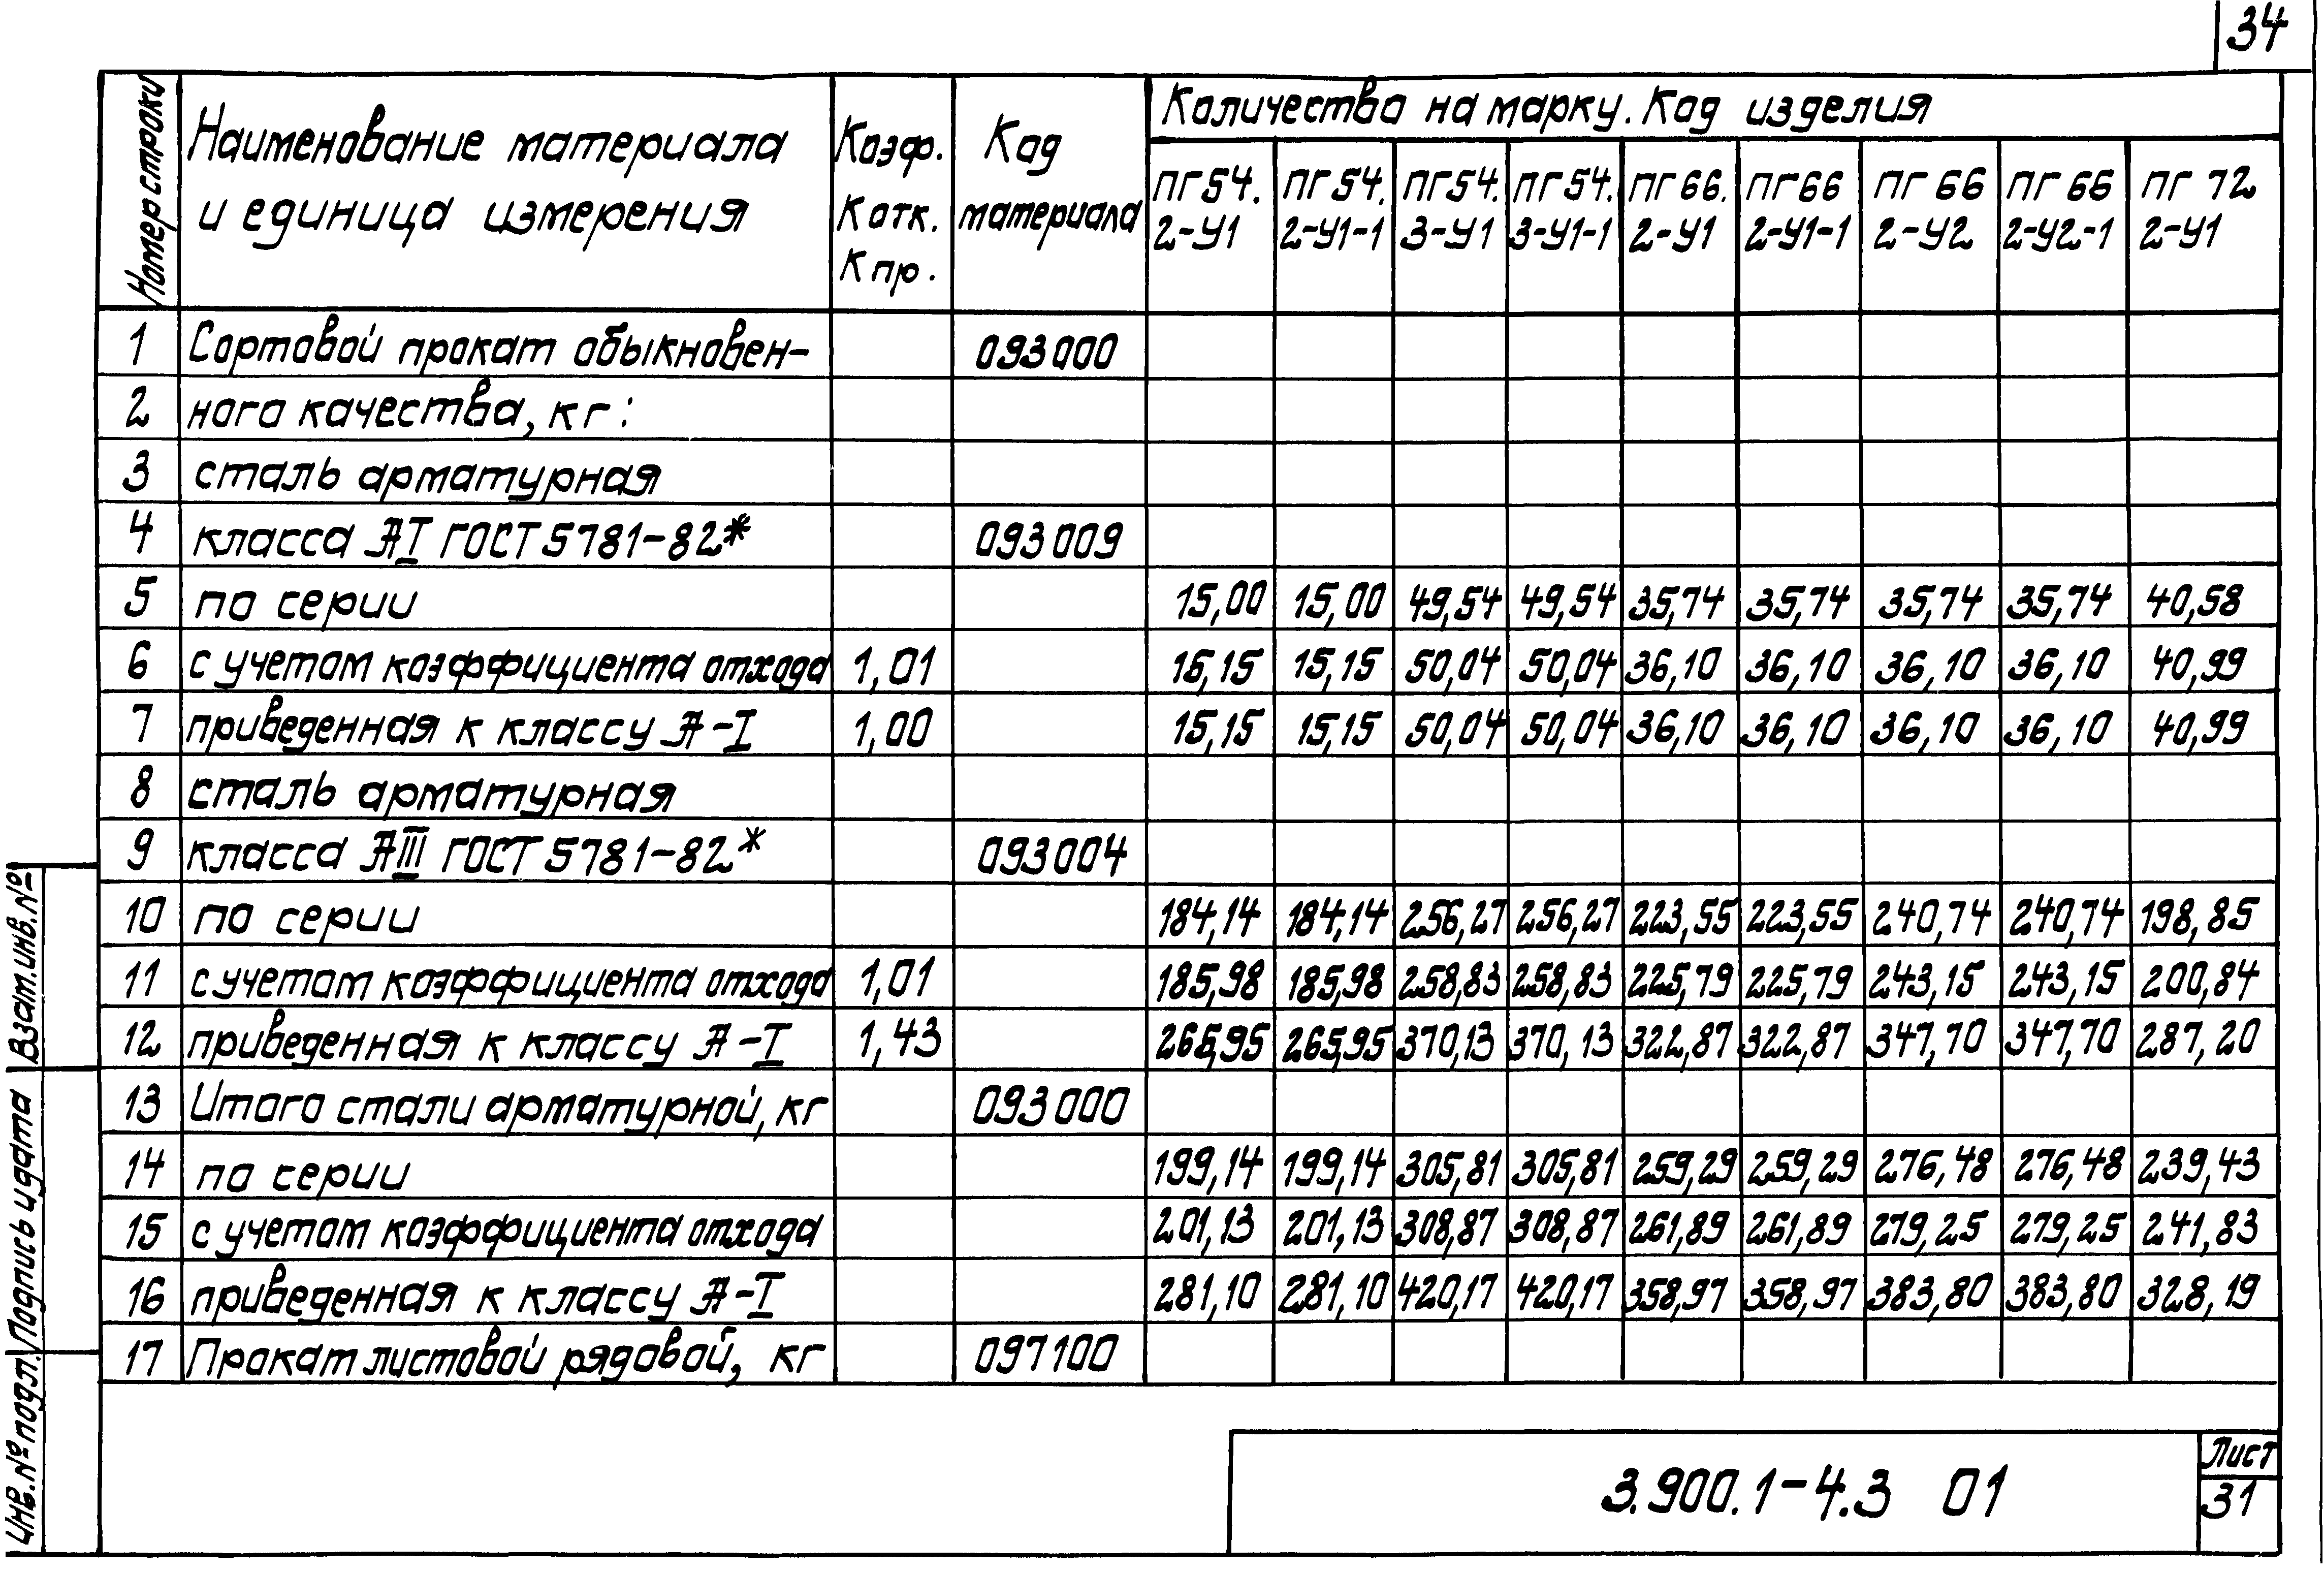 34
Номер строки Наименование материала и единица измерения Коэф. Котк. Кпр. Код материала Количество на марку. Код изделия
ПГ54. 2-У1 ПГ54. 2-У1-1 ПГ54. 3-У1 ПГ54. 3-У1-1 ПГ66. 2-У1 ПГ66 2-У1-1 ПГ66 2-У2 ПГ66 2-У2-1 ПГ72 2-У1
1 Сортовой прокат обыкновен- 093000
2 ного качества, кг:
3 сталь арматурная
4 класса АI ГОСТ 5781-82* 093009
5 по серии 15,00 15,00 49,54 49,54 35,74 35,74 35,74 35,74 40,58
6 с учетом коэффициента отхода 1,01 15,15 15,15 50,04 50,04 36,10 36,10 36,10 36,10 40,99
7 приведенная к классу А-I 1,00 15,15 15,15 50,04 50,04 36,10 36,10 36,10 36,10 40,99
8 сталь арматурная
9 класса АIII ГОСТ 5781-82* 093004
10 по серии 184,14 184,14 256,27 256,27 223,55 223,55 240,74 240,74 198,85
11 с учетом коэффициента отхода 1,01 185,98 185,98 258,83 258,83 225,79 225,79 243,15 243,15 200,84
12 приведенная к классу А-I 1,43 265,95 265,95 370,13 370,13 322,87 322,87 347,70 347,70 287,20
13 Итого стали арматурной, кг 093000
14 по серии 199,14 199,14 305,81 305,81 259,29 259,29 276,48 276,48 239,43
15 с учетом коэффициента отхода 201,13 201,13 308,87 308,87 261,89 261,89 279,25 279,25 241,83
16 приведенная к классу А-I 281,10 281,10 420,17 420,17 358,97 358,97 383,80 383,80 328,19
17 Прокат листовой рядовой, кг 097100
Инв.№ подл. Подпись и дата Взам.инв.№
3.900.1-4.3 01
Лист
31